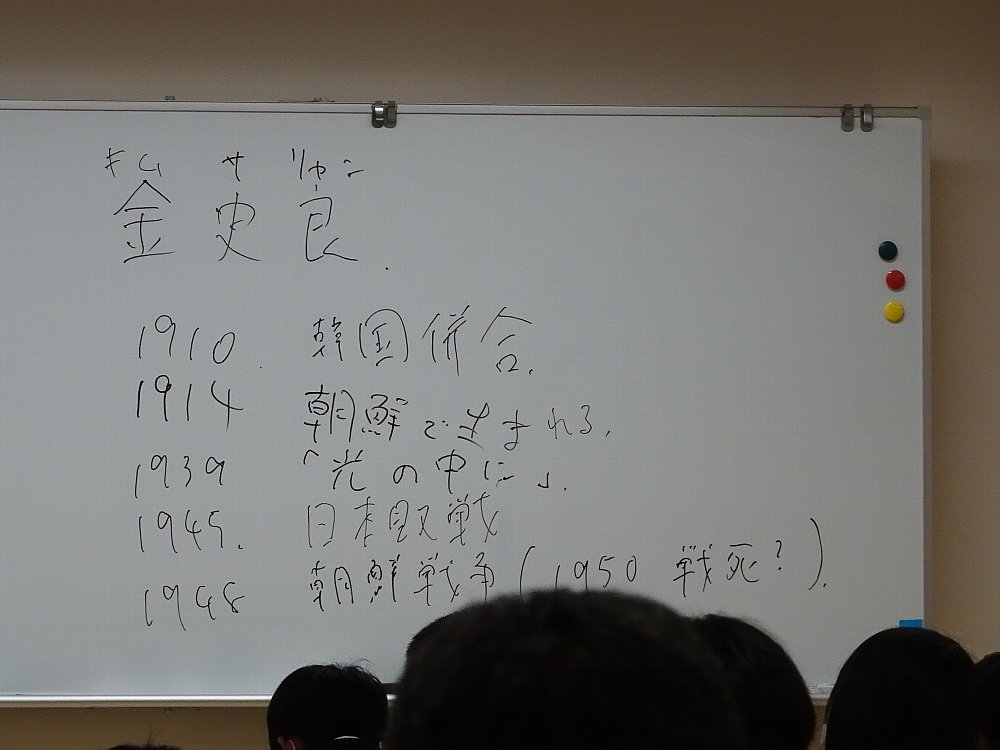 キム サ リャン
金 史 良.
1910. 韓国併合.
1914 朝鮮で生まれる.
1939 「光の中に」.
1945. 日本敗戦
1948 朝鮮戦争(1950 戦死?).